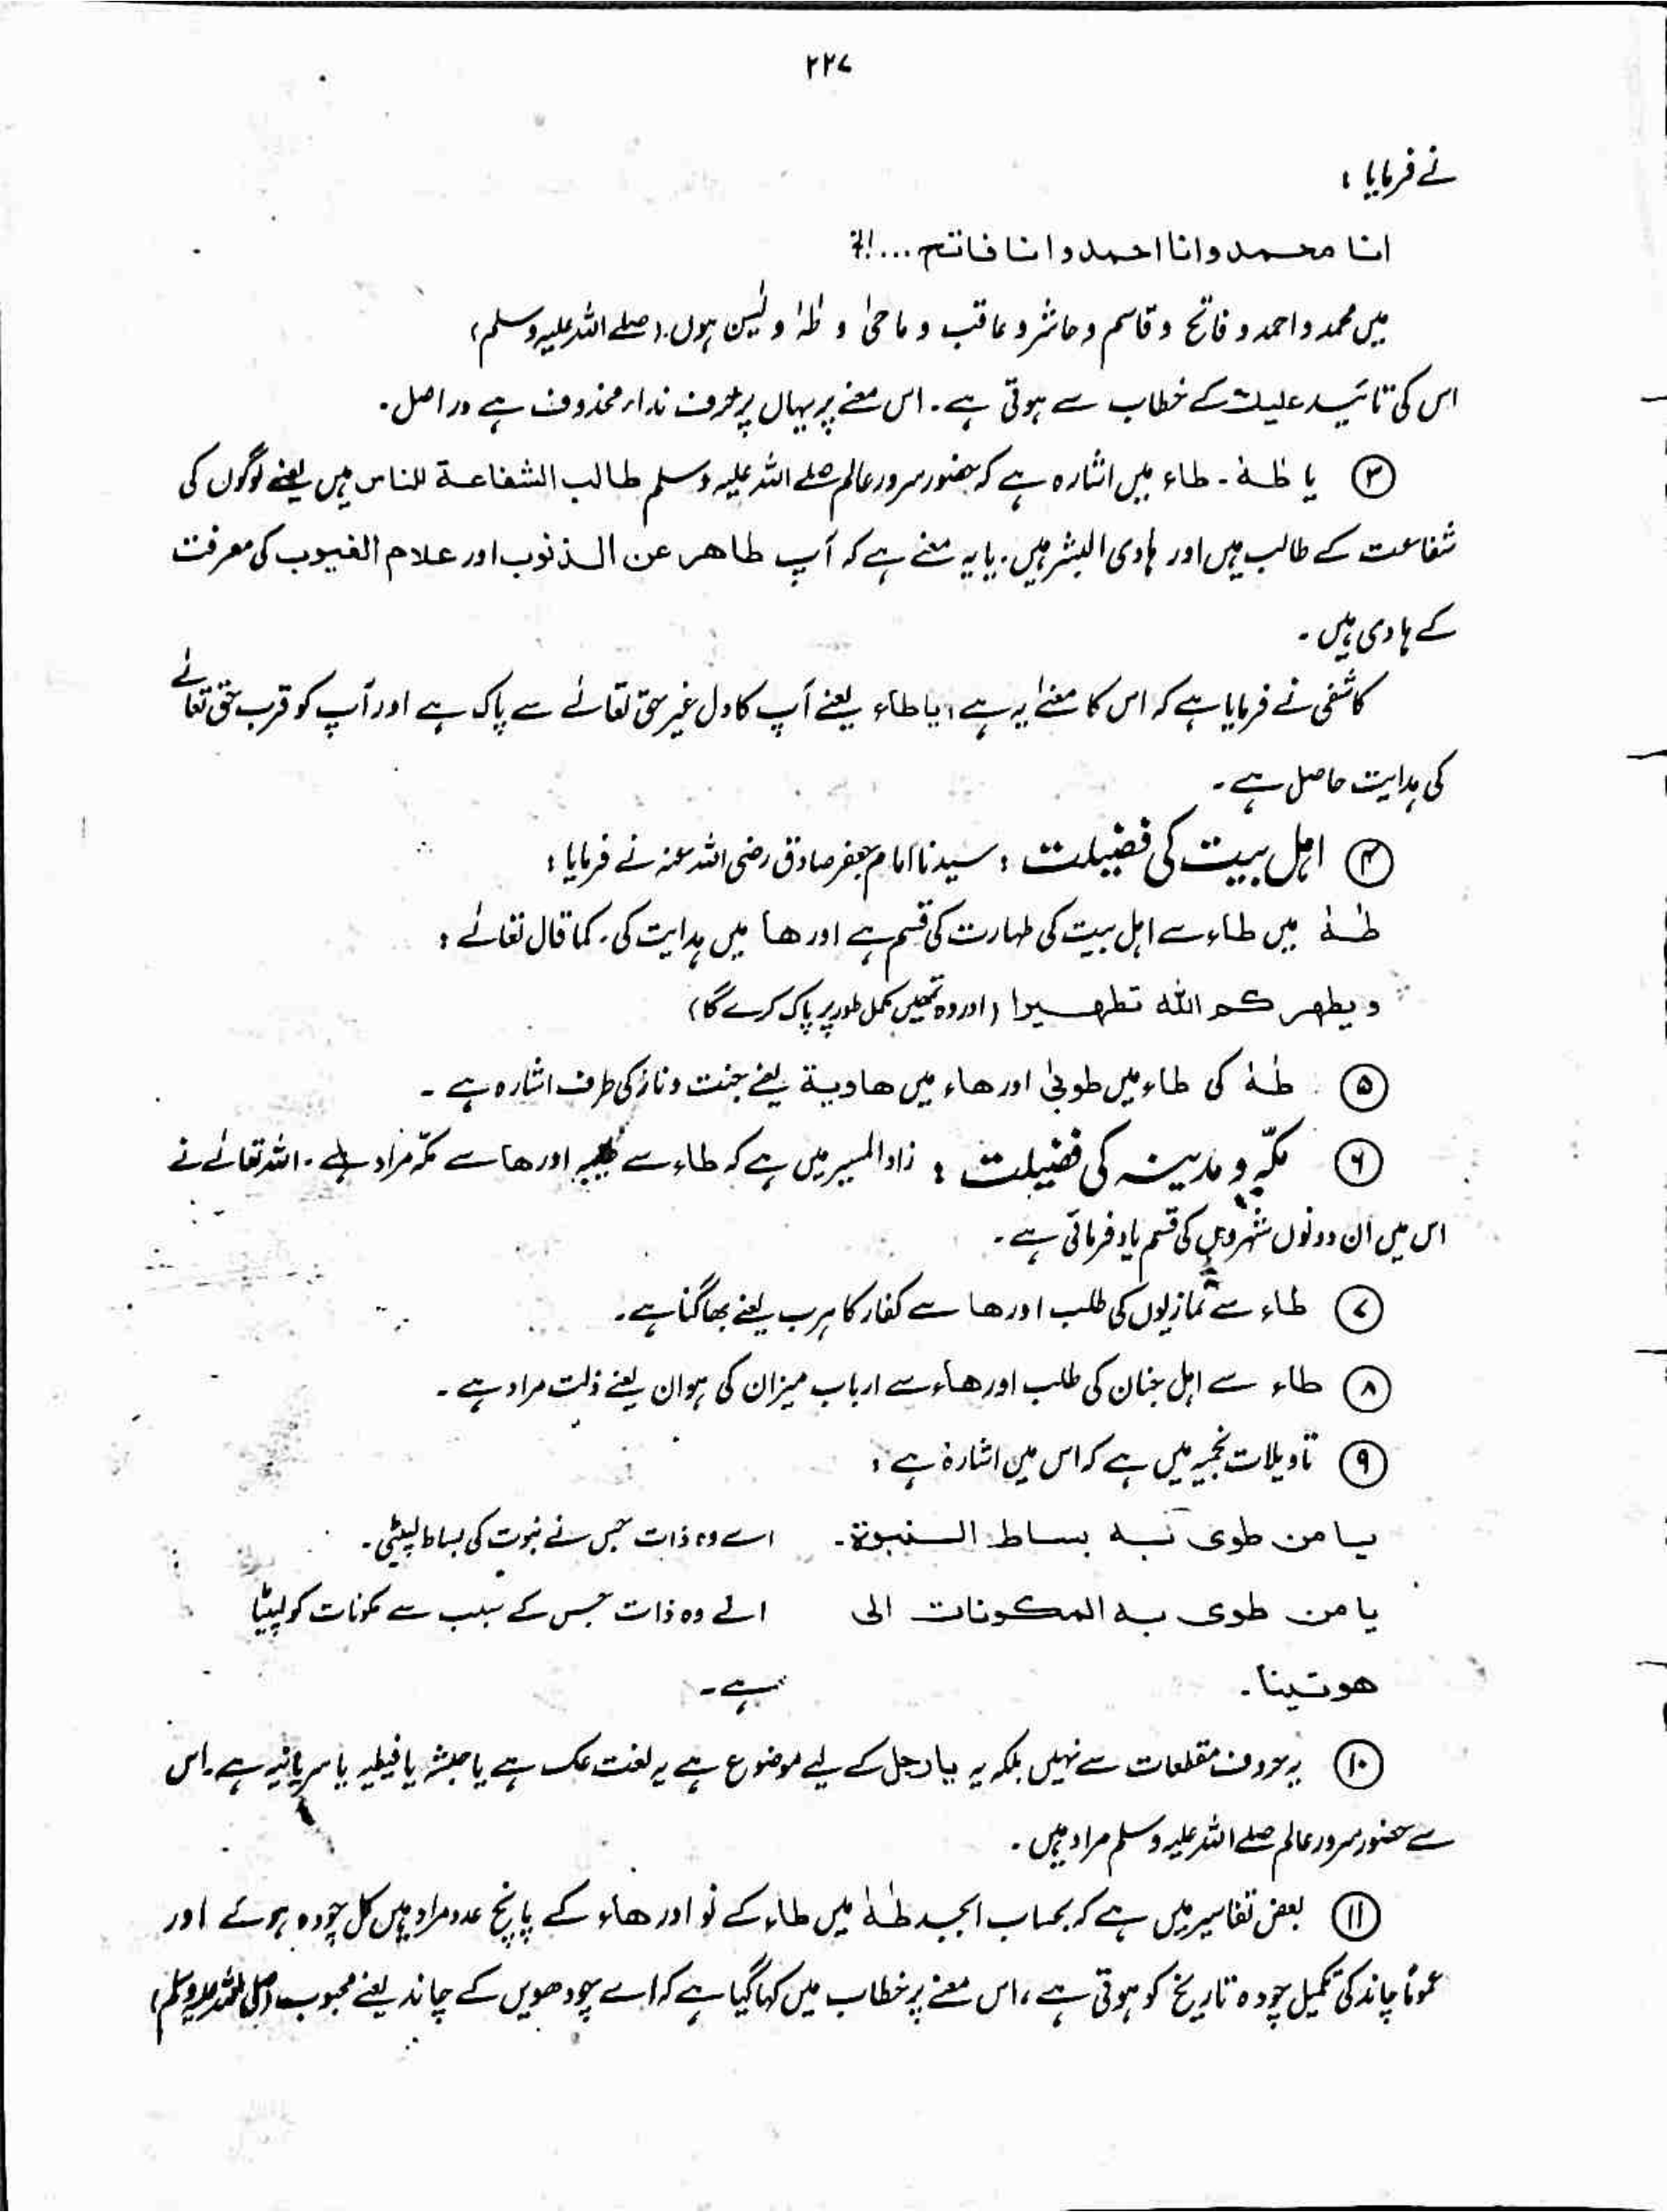 ۲۲۷
نے فرمایا :
انا محمد و انا احمد و انا فاتح ... الخ
میں محمد و احمد و فاتح و قاسم و حاشر و عاقب و ماحیٰ و طٰہٰ و یٰسین ہوں۔ (صلے اللہ علیہ وسلم)
اس کی تائید علیک کے خطاب سے ہوتی ہے۔ اس معنے پر یہاں پر حرف نداء محذوف ہے در اصل۔
③ یا طٰہٰ۔ طاء میں اشارہ ہے کہ حضور سرور عالم صلے اللہ علیہ وسلم طالب الشفاعة للناس ہیں یعنے لوگوں کی
شفاعت کے طالب ہیں اور ہادی البشر ہیں۔ یا یہ معنے ہے کہ آپ طاهر عن الذنوب اور علام الغیوب کی معرفت
کے ہادی ہیں۔
کاشفی نے فرمایا ہے کہ اس کا معنےٰ یہ ہے، یا طاء یعنے آپ کا دل غیر حق تعالےٰ سے پاک ہے اور آپ کو قرب حق تعالےٰ
کی ہدایت حاصل ہے۔
④ اہل بیت کی فضیلت : سیدنا امام جعفر صادق رضی اللہ عنہ نے فرمایا :
طٰہٰ میں طاء سے اہل بیت کی طہارت کی قسم ہے اور ھا میں ہدایت کی۔ کما قال تعالےٰ :
و یطهر کم الله تطهیرا (اور وہ تمھیں مکمل طور پر پاک کرے گا)
⑤ طٰہٰ کی طاء میں طوبیٰ اور ھاء میں ھاویة یعنے جنت و نار کی طرف اشارہ ہے۔
⑥ مکّہ و مدینہ کی فضیلت : زاد المسیر میں ہے کہ طاء سے طیبہ اور ھا سے مکّہ مراد ہے۔ اللہ تعالےٰ نے
اس میں ان دونوں شہروں کی قسم یاد فرمائی ہے۔
⑦ طاء سے نمازیوں کی طلب اور ھا سے کفار کا ہرب یعنے بھاگنا ہے۔
⑧ طاء سے اہل جنان کی طلب اور ھاء سے ارباب میزان کی ہوان یعنے ذلت مراد ہے۔
⑨ تاویلات نجمیہ میں ہے کہ اس میں اشارہ ہے :
یا من طوی به بساط النبوة۔ اے وہ ذات جس نے نبوت کی بساط لپیٹی۔
یا من طوی به المکونات الی اے وہ ذات جس کے سبب سے مکونات کو لپیٹا
هوتینا۔ ہے۔
⑩ یہ حروف مقطعات سے نہیں بلکہ یہ یا رجل کے لیے موضوع ہے یہ لغت عک ہے یا حبشہ یا قبطیہ یا سریانیہ ہے۔ اس
سے حضور سرور عالم صلے اللہ علیہ وسلم مراد ہیں۔
⑪ بعض تفاسیر میں ہے کہ بحساب ابجد طٰہٰ میں طاء کے نو اور ھاء کے پانچ عدد مراد ہیں کل چودہ ہوئے اور
عموماً چاند کی تکمیل چودہ تاریخ کو ہوتی ہے، اس معنے پر خطاب میں کہا گیا ہے کہ اے چودھویں کے چاند یعنے محبوب (صلی اللہ علیہ وسلم)